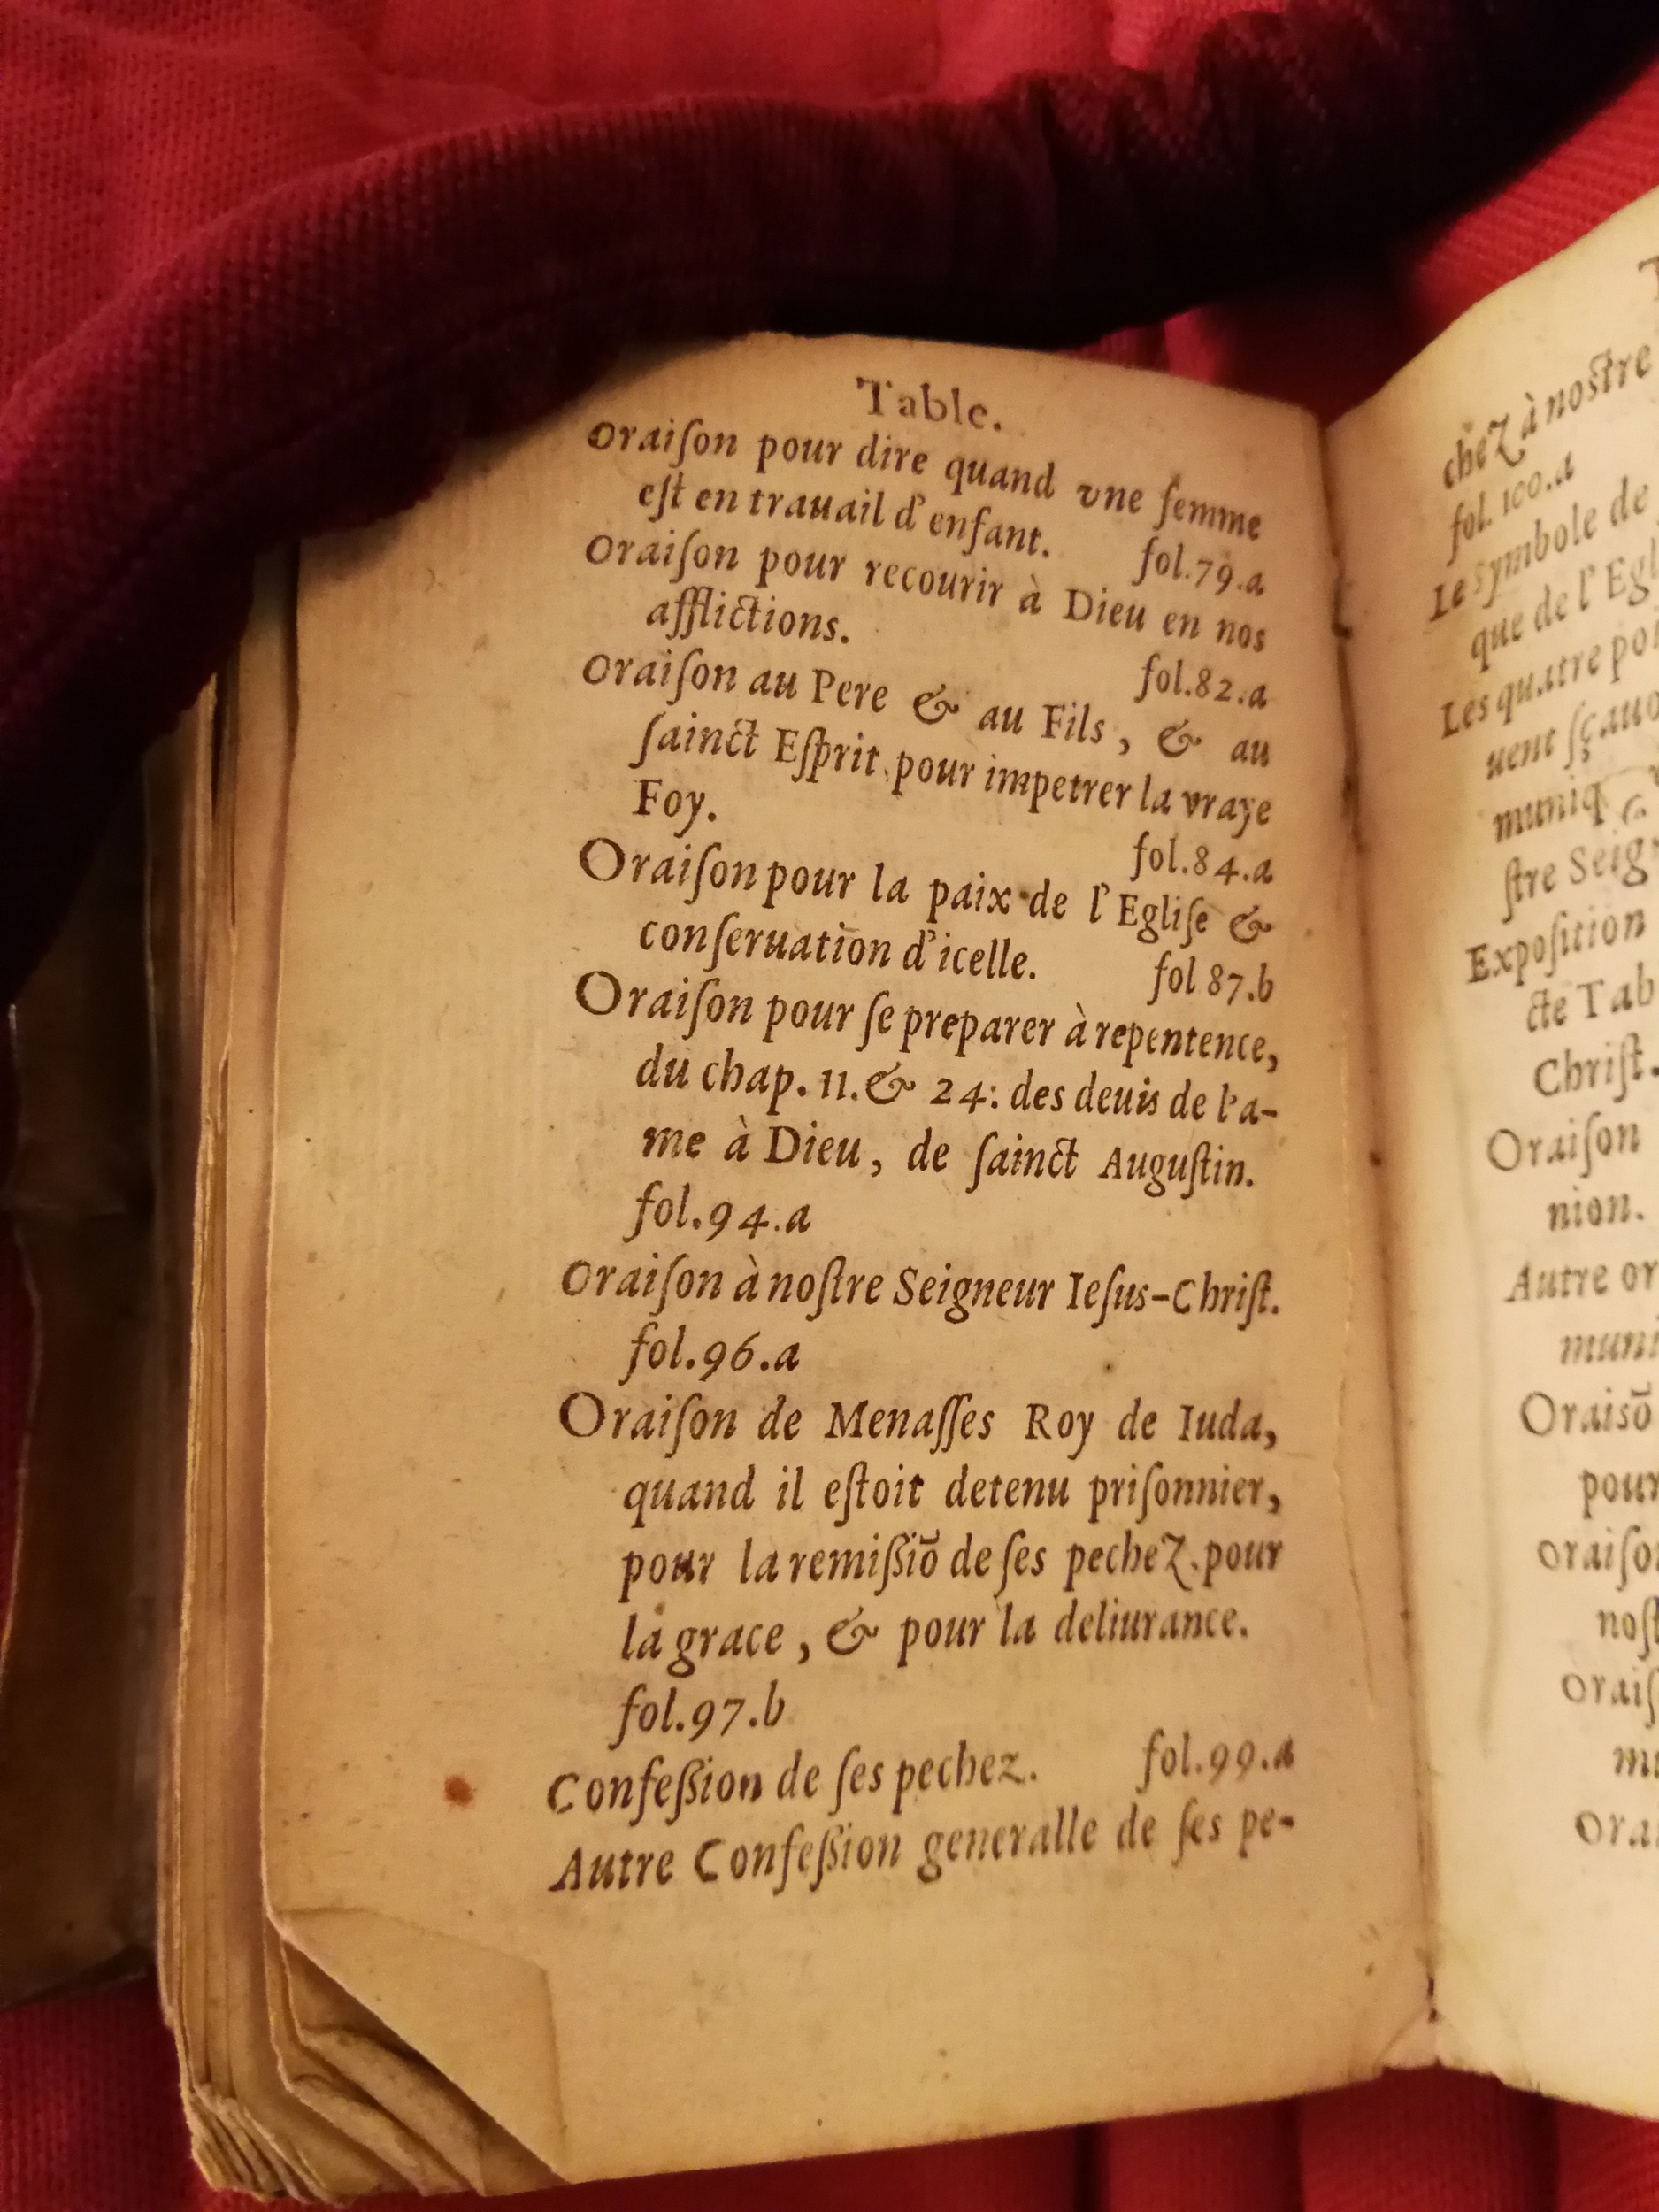 Table.
Oraiſon pour dire quand vne femme
eſt en trauail d'enfant. fol.79.a
Oraiſon pour recourir à Dieu en nos
afflictions. fol.82.a
Oraiſon au Pere & au Fils, & au
ſainct Eſprit pour impetrer la vraye
Foy. fol.84.a
Oraiſon pour la paix de l'Egliſe &
conſeruation d'icelle. fol 87.b
Oraiſon pour ſe preparer à repentence,
du chap. 11. & 24: des deuis de l'a-
me à Dieu, de ſainct Auguſtin.
fol.94.a
Oraiſon à noſtre Seigneur Ieſus-Chriſt.
fol.96.a
Oraiſon de Menaſſes Roy de Iuda,
quand il eſtoit detenu priſonnier,
pour la remiſſiō de ſes pechez pour
la grace, & pour la deliurance.
fol.97.b
Confeſſion de ſes pechez. fol.99.a
Autre Confeſſion generalle de ſes pe-
chez à noſtre
fol. 100.a
Le ſymbole de
que de l'Egl
Les quatre poi
uent ſçauo
muniq
ſtre Seig
Expoſition
cte Tab
Chriſt.
Oraiſon
nion.
Autre or
muni
Oraisō
pour
Oraiſo
noſt
Oraiſ
mu
Ora